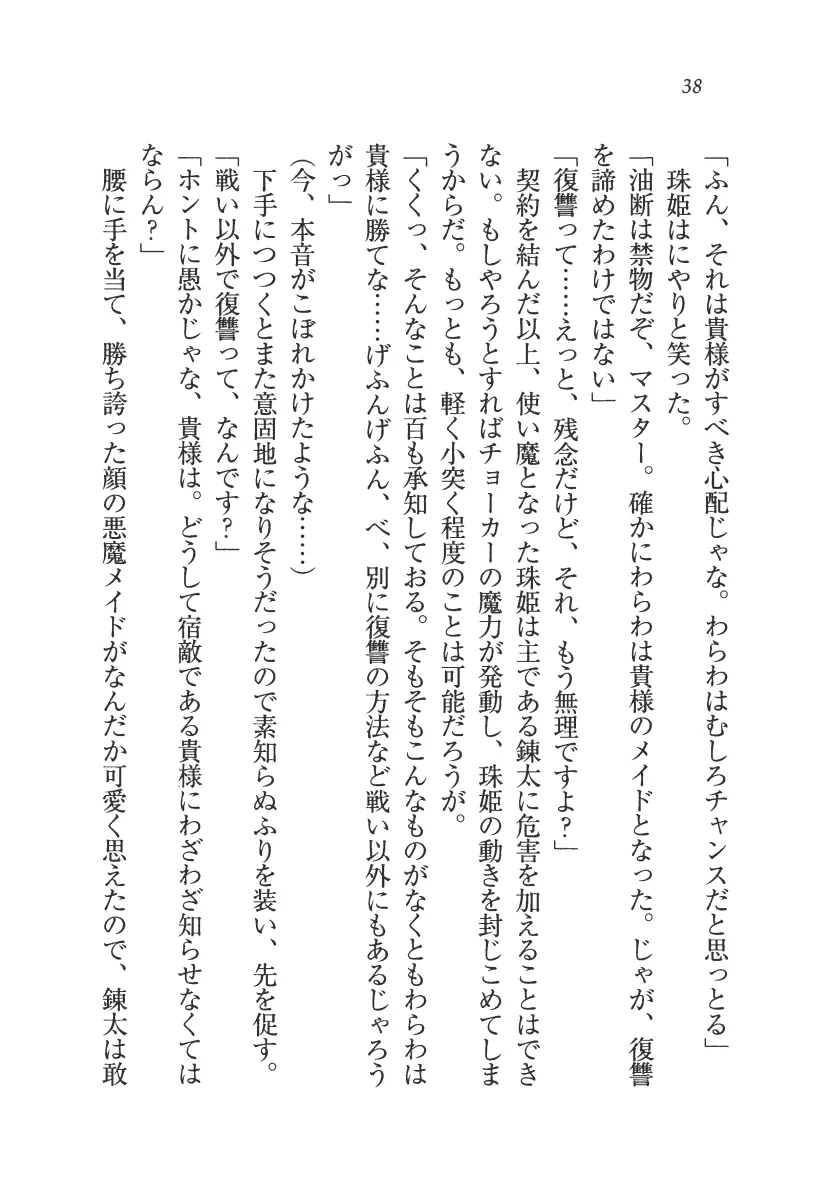 38
「ふん、それは貴様がすべき心配じゃな。わらわはむしろチャンスだと思っとる」
珠姫はにやりと笑った。
「油断は禁物だぞ、マスター。確かにわらわは貴様のメイドとなった。じゃが、復讐
を諦めたわけではない」
「復讐って……えっと、残念だけど、それ、もう無理ですよ？」
契約を結んだ以上、使い魔となった珠姫は主である錬太に危害を加えることはでき
ない。もしやろうとすればチョーカーの魔力が発動し、珠姫の動きを封じこめてしま
うからだ。もっとも、軽く小突く程度のことは可能だろうが。
「くくっ、そんなことは百も承知しておる。そもそもこんなものがなくともわらわは
貴様に勝てな……げふんげふん、べ、別に復讐の方法など戦い以外にもあるじゃろう
がっ」
（今、本音がこぼれかけたような……）
下手につつくとまた意固地になりそうだったので素知らぬふりを装い、先を促す。
「戦い以外で復讐って、なんです？」
「ホントに愚かじゃな、貴様は。どうして宿敵である貴様にわざわざ知らせなくては
ならん？」
腰に手を当て、勝ち誇った顔の悪魔メイドがなんだか可愛く思えたので、錬太は敢